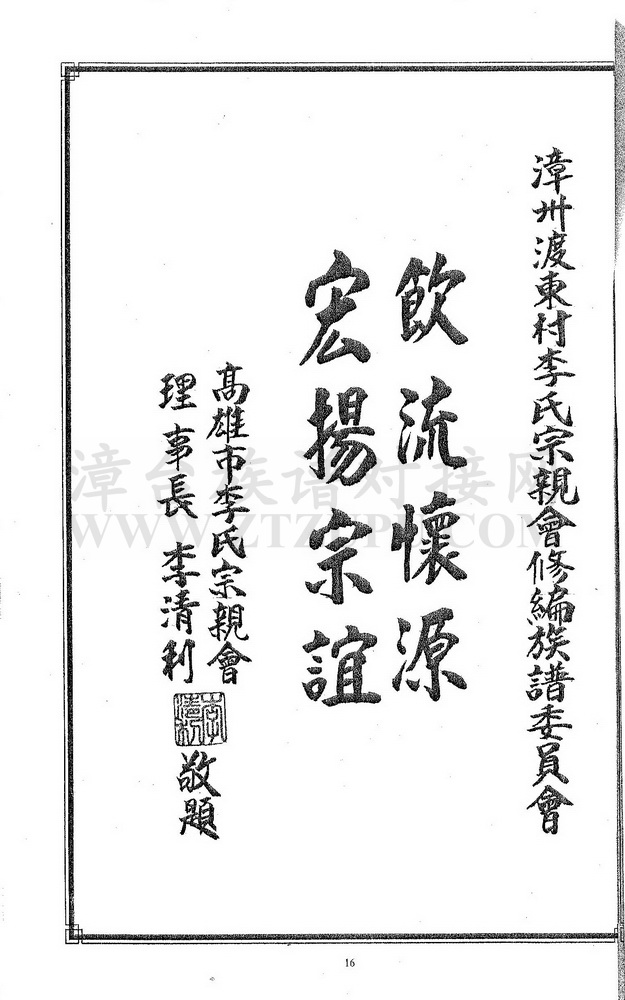 漳州渡東村李氏宗親會修編族譜委員會
飲流懷源
宏揚宗誼
高雄市李氏宗親會
理事長 李清利 敬題
李清利
漳台族谱对接网
16